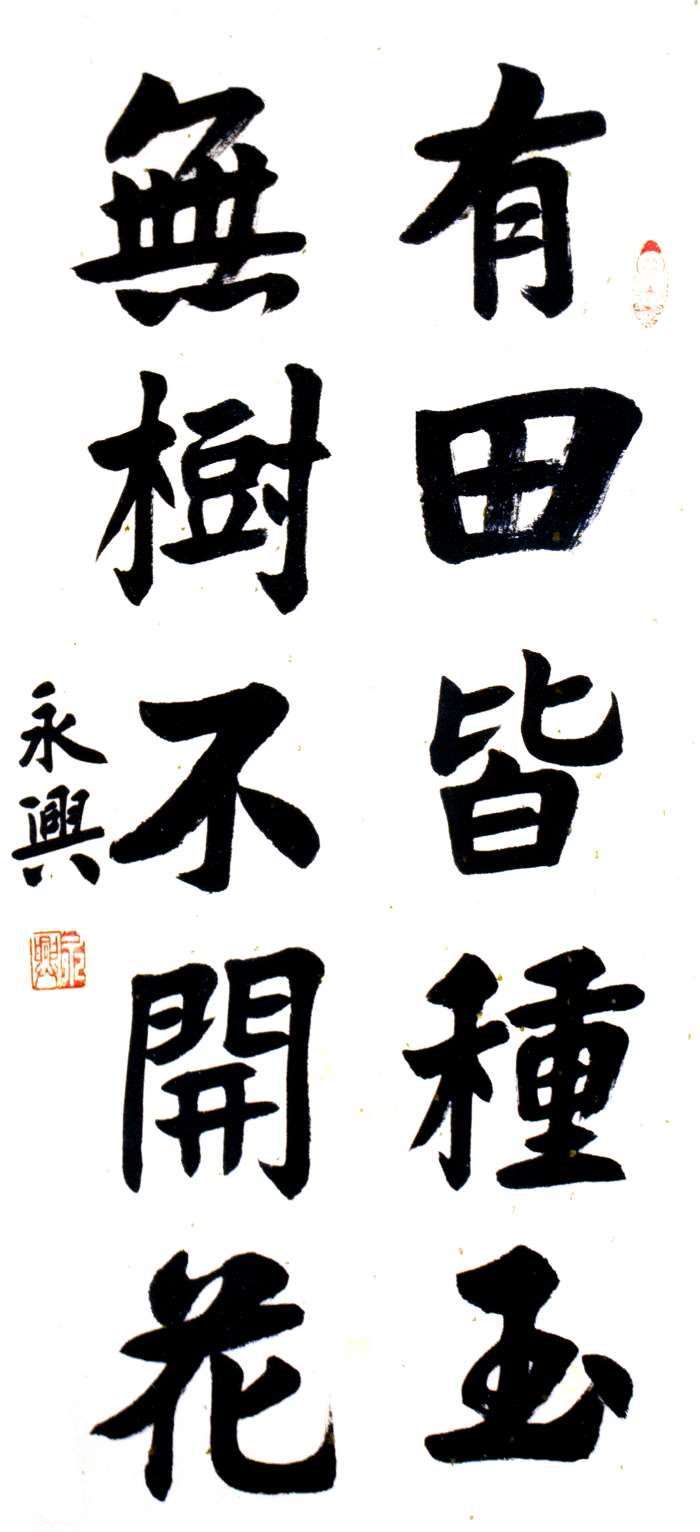 有田皆種玉
無樹不開花
永興
永興